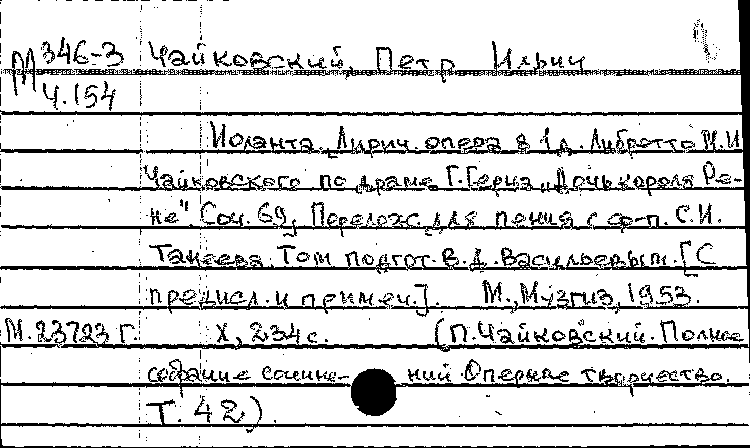 М 346-3 Чайковский, Петр Ильич
Ч.154
Иоланта. Лирич. опера в 1 д. Либретто М.И.
Чайковского по драме Г. Герца „Дочь короля Ре-
не". Соч. 69, Перелож. для пения с ф-п. С.И.
Танеева. Том подгот. В.Д. Васильевым. [С
предисл. и примеч.]. М., Музгиз, 1953.
М. 23723 Г. X, 234 с. (П. Чайковский. Полное
собрание сочине- ний. Оперное творчество.
Т. 42).